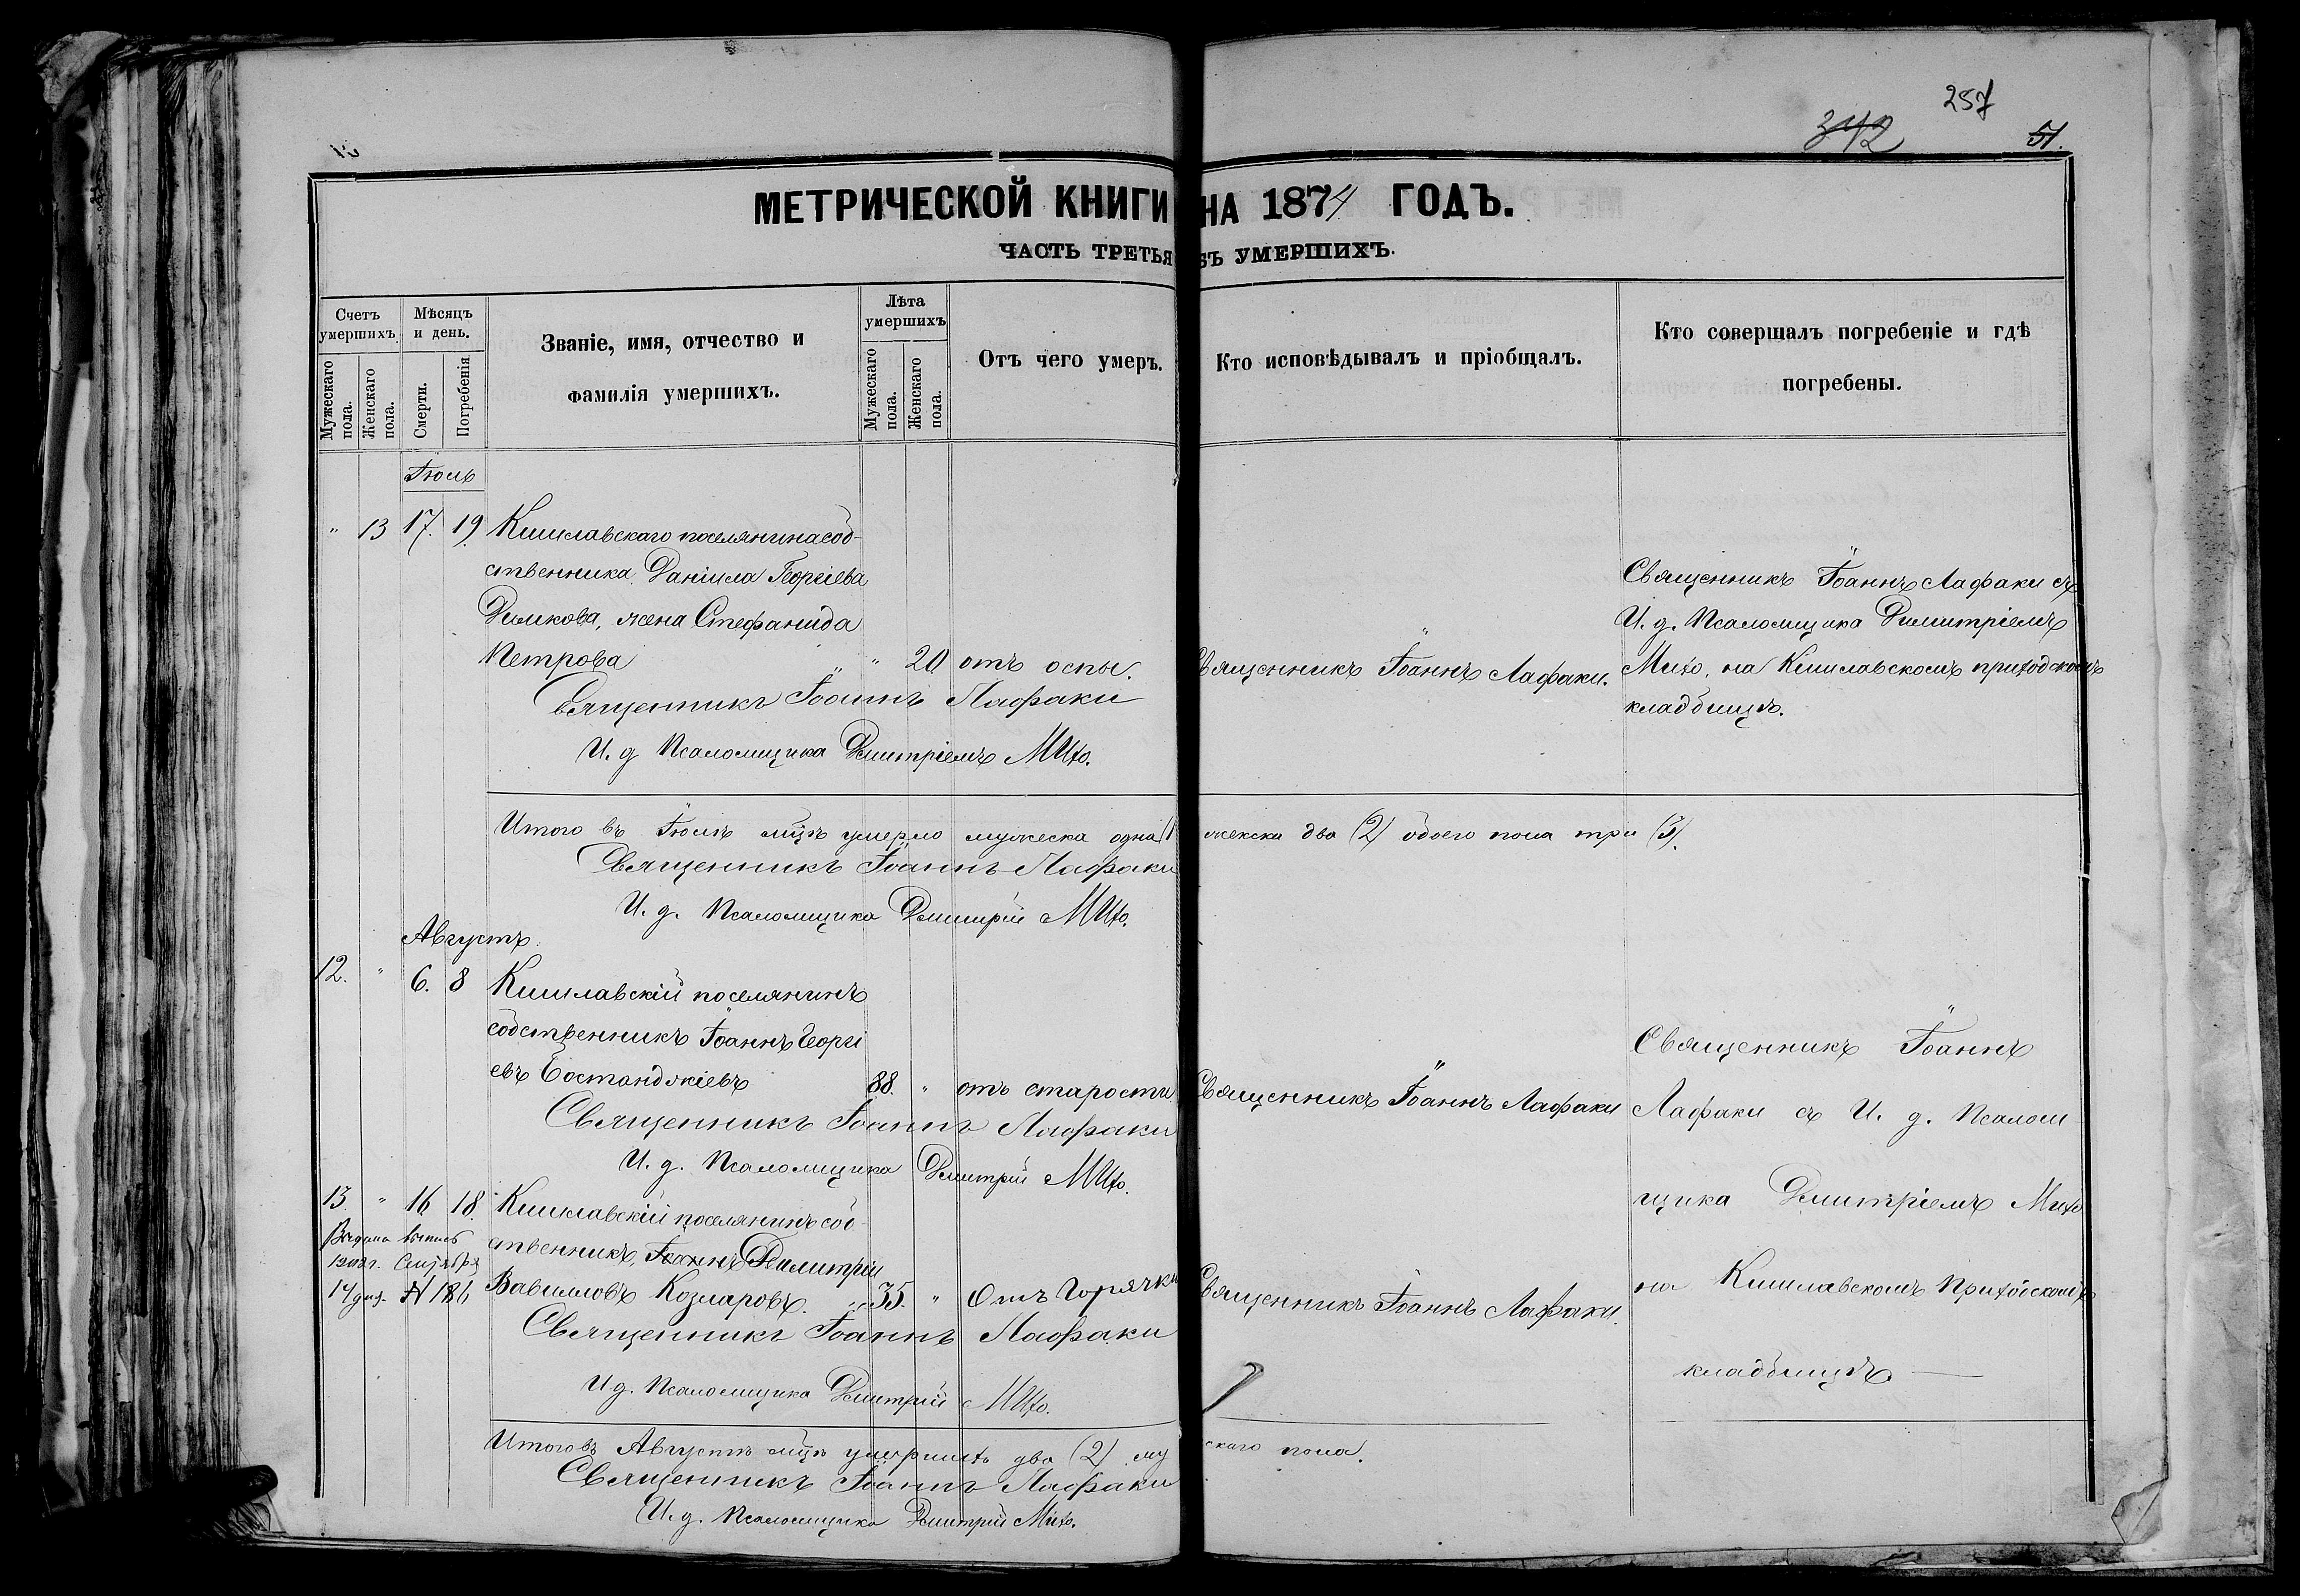 257
342
51.
МЕТРИЧЕСКОЙ КНИГИ НА 1874 ГОДЪ.
ЧАСТЬ ТРЕТЬЯ ОБЪ УМЕРШИХЪ.
Счетъ умершихъ.
Мужескаго пола.
Женскаго пола.
Мѣсяцъ и день.
Смерти.
Погребенія
Званіе, имя, отчество и
фамилія умершихъ.
Лѣта умершихъ
Мужескаго пола.
Женскаго пола.
Отъ чего умеръ.
Кто исповѣдывалъ и пріобщалъ.
Кто совершалъ погребеніе и гдѣ
погребены.
Іюль
" 13 17. 19. Кишлавскаго поселянина соб-
ственника Даніила Георгіева
Димкова, жена Стефанида
Петрова " 20 отъ оспы.
Священникъ Іоаннъ Лафаки.
Священникъ Іоаннъ Лафаки съ
И. д. Псаломщика Димитріемъ
Михо, на Кишлавскомъ приходскомъ
кладбищѣ.
Священникъ Іоаннъ Лафаки
И. д Псаломщика Дмитріемъ Михо.
Итого въ Іюлѣ мцѣ умерло мужеска одна (1 женска два (2) обоего пола три (3).
Священникъ Іоаннъ Лафаки
И. д. Псаломщика Дмитрій Михо.
Августъ.
12. " 6. 8 Кишлавскій поселянинъ
собственникъ Іоаннъ Георгі
евъ Бостанджіевъ 88. " отъ старости
Священникъ Іоаннъ Лафаки
Священникъ Іоаннъ Лафаки
И. д. Псаломщика Дмитрій Михо.
13. " 16 18. Кишлавскій поселянинъ соб-
ственникъ, Іоаннъ Димитрій
Вавиловъ Козларовъ. 35. " Отъ Горячки
Выдана выпись
14 дня № 186
Священникъ Іоаннъ Лафаки.
Священникъ Іоаннъ
Лафаки съ И. д. Псалом-
щика Дмитріемъ Михо
на Кишлавскомъ Приходскомъ
кладбищѣ
Священникъ Іоаннъ Лафаки
И д. Псаломщика Дмитрій Михо.
Итого въ Августѣ мцѣ умершихъ два (2) му скаго пола.
Священникъ Іоаннъ Лафаки
И. д. Псаломщика Дмитрій Михо.